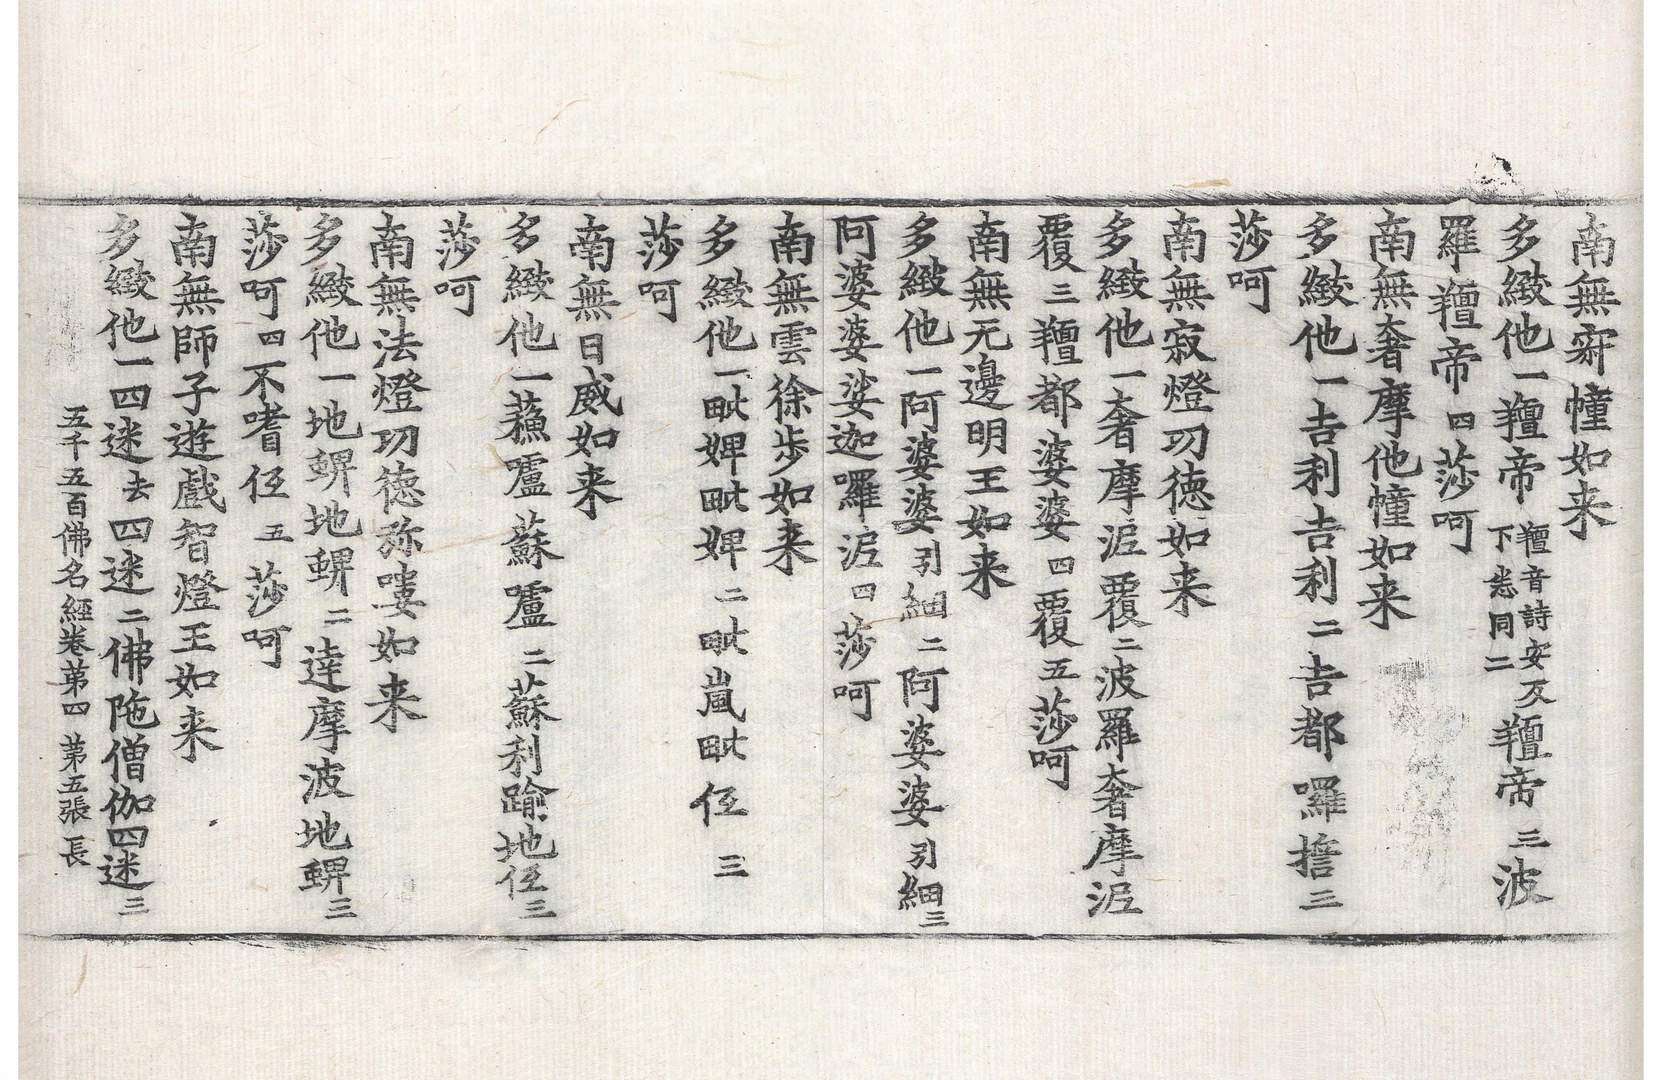 南無㝛幢如来
多緻他一羶帝羶音詩安反下悉同二羶帝三波
羅羶帝四莎呵
南無奢摩他幢如来
多緻他一吉利吉利二吉都囉擔三
莎呵
南無寂燈功徳如来
多緻他一奢摩泥覆二波羅奢摩泥
覆三羶都婆婆四覆五莎呵
南無无邊明王如来
多緻他一阿婆婆引細二阿婆婆引細三
阿婆婆娑迦囉泥四莎呵
南無雲徐步如来
多緻他一毗婢毗婢二毗嵐毗低三
莎呵
南無日威如来
多緻他一蘓嚧蘇嚧二蘇利踰地低三
莎呵
南無法燈功徳弥嘍如来
多緻他一地蜱地蜱二達摩波地蜱三
莎呵四不嗜低五莎呵
南無師子遊戲智燈王如来
多緻他一四迷去四迷二佛陁僧伽四迷三
五千五百佛名經卷苐四 苐五張 長